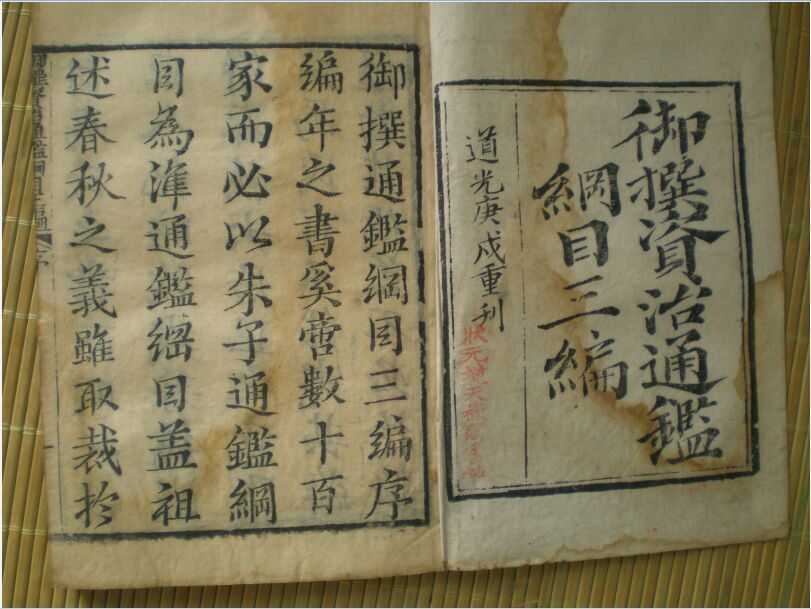 御撰資治通鑑
綱目三編
道光庚戌重刊
狀元境天
御撰通鑑綱目三編序
編年之書奚啻數十百
家而必以朱子通鑑綱
目為準通鑑綱目盖祖
述春秋之義雖取裁扵